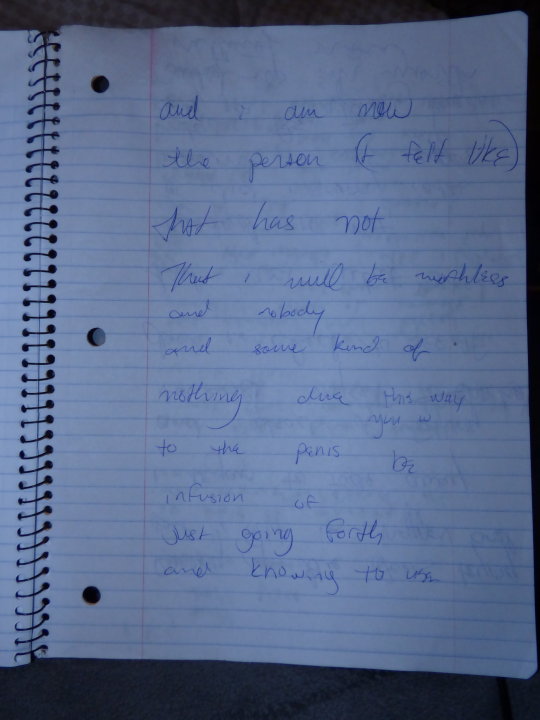 and i am now
the person (I felt like)
that has not
That i will be worthless
and nobody
and some kind of
nothing due this way
you
to the penis be
infusion of
Just going forth
and knowing to use